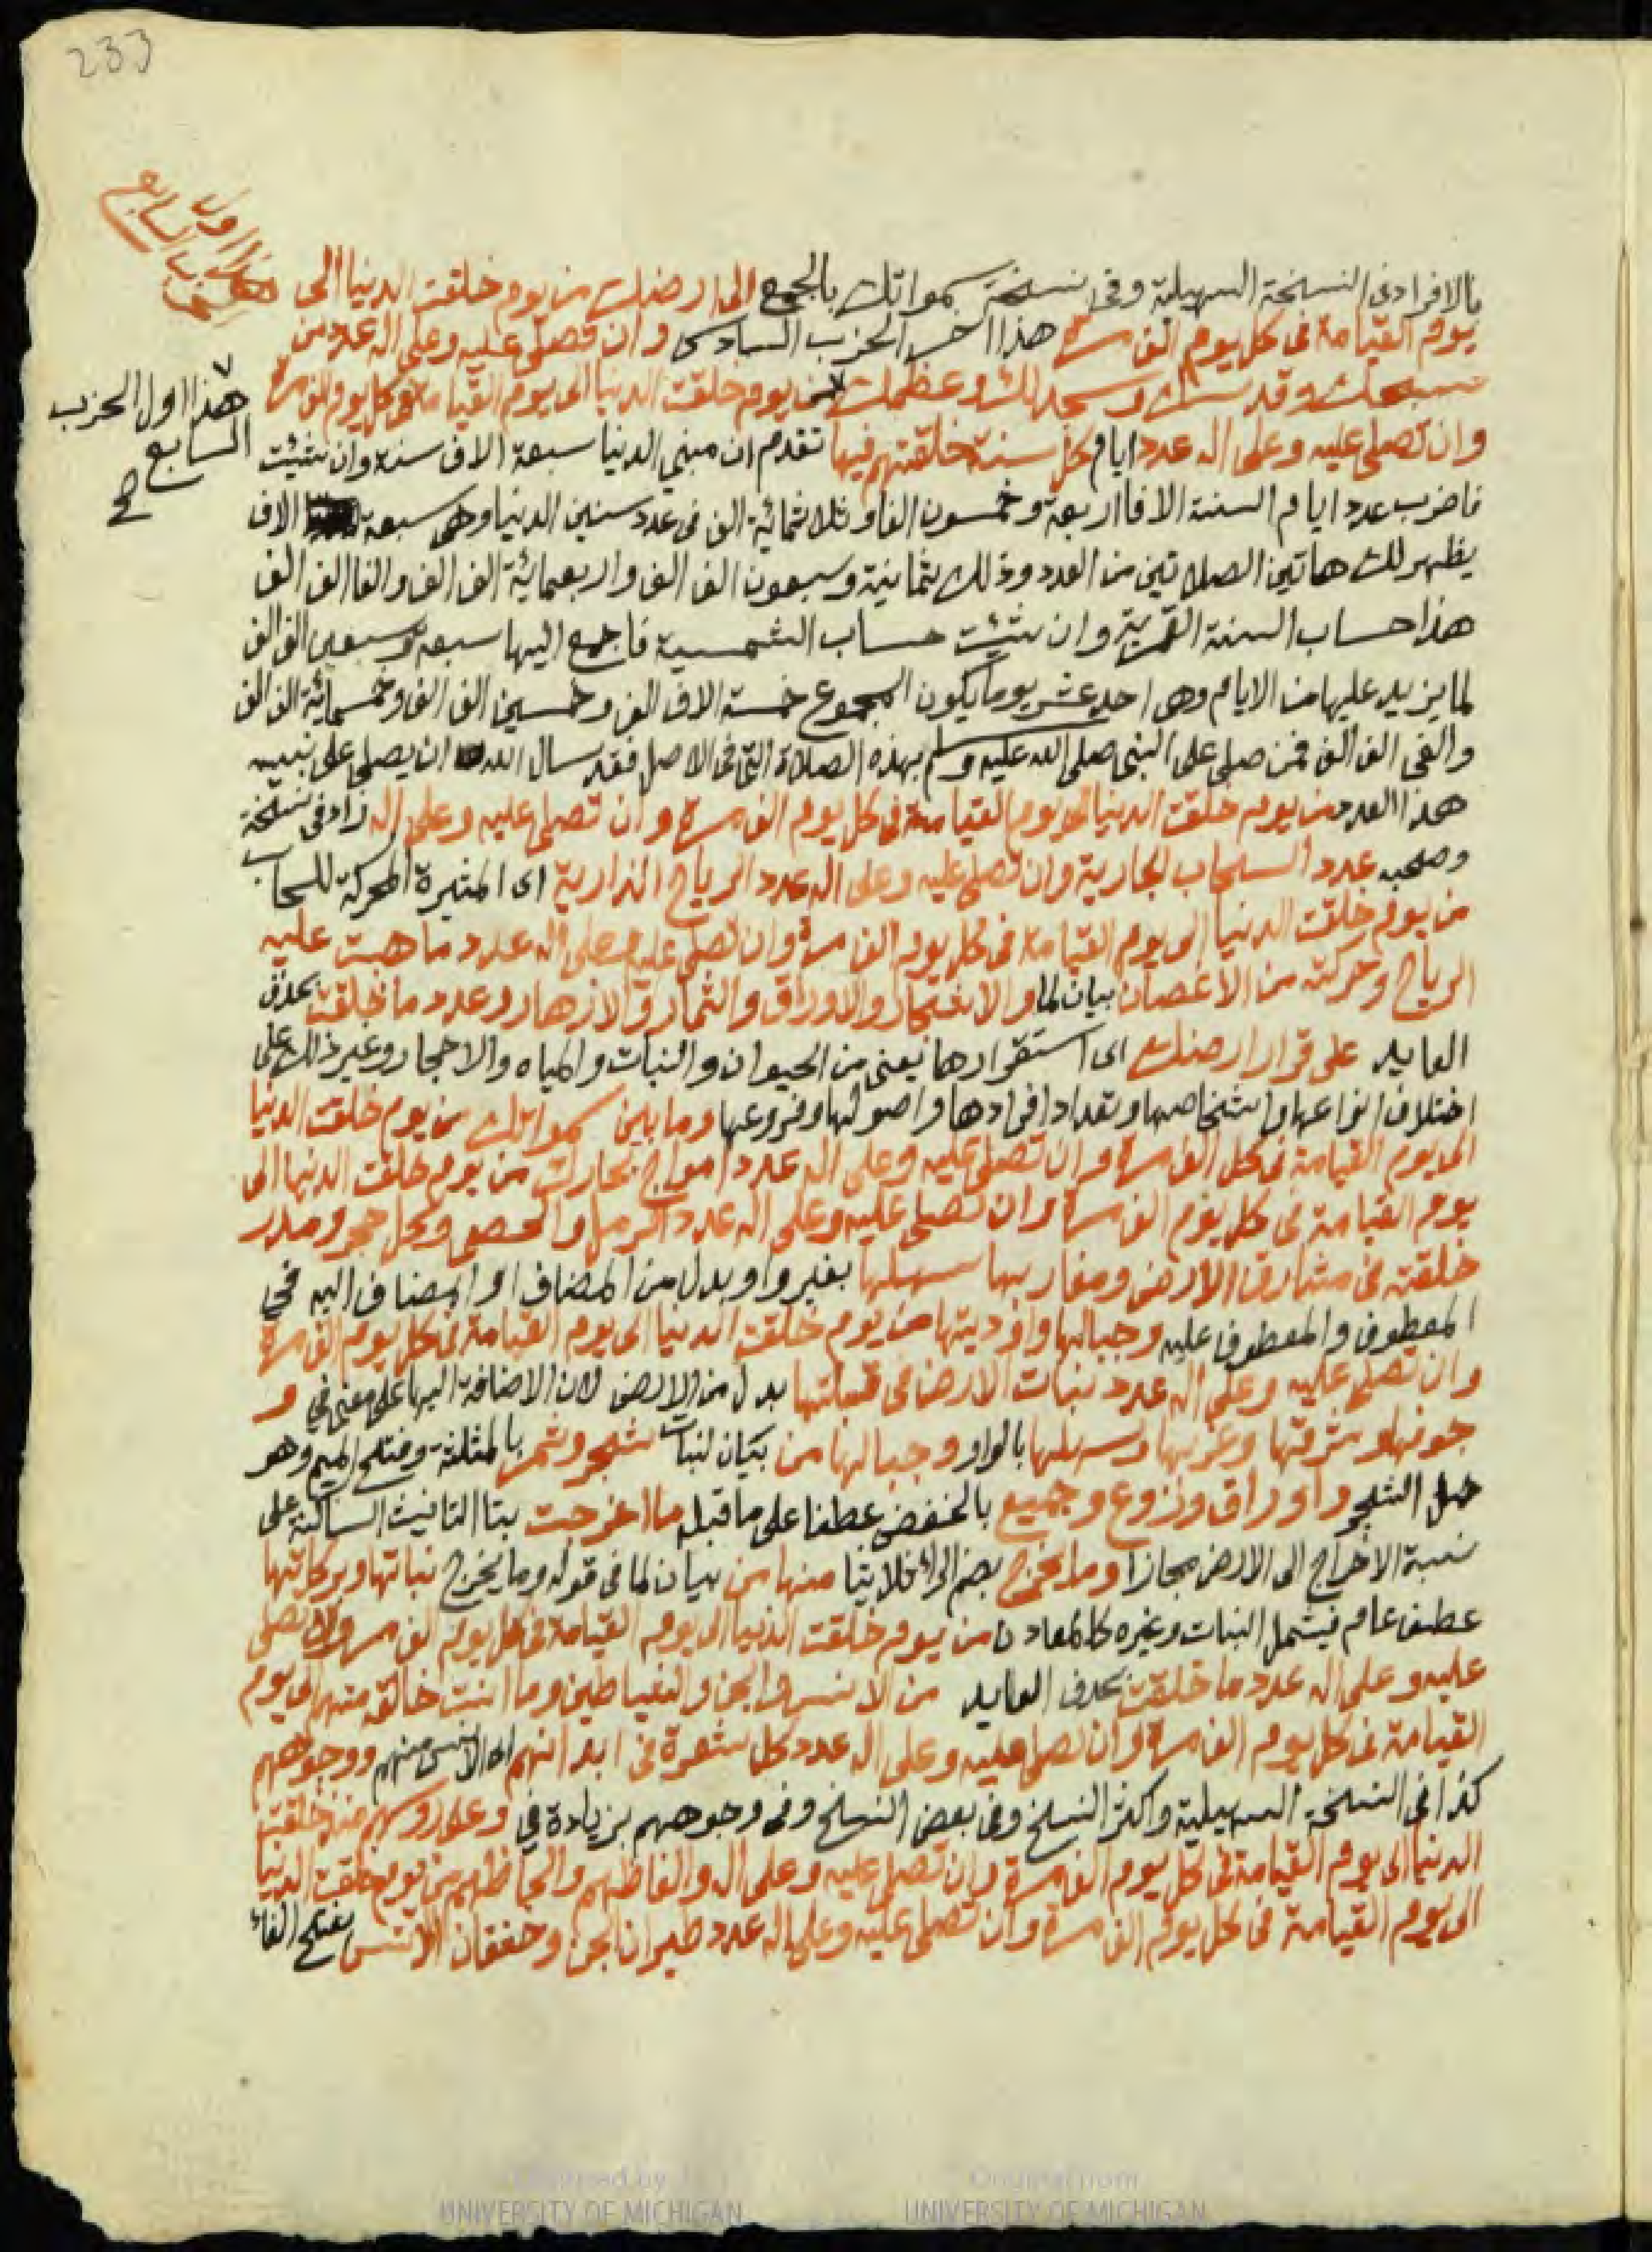 233
بالافراد فى النسخة السهيلية وفى نسخة سمواتك بالجمع الى ارضك من يوم خلقت الدنيا الى
يوم القيامة فى كل يوم الف مرة هذا اخر الحزب السادس وان تصلى عليه وعلى اله عدد من
سبحك وقدسك وسجد لك وعظمك من يوم خلقت الدنيا الى يوم القيامة فى كل يوم الف مرة
هذا اول الحزب
السابع
صح
وان تصلى عليه وعلى اله عدد ايام كل سنة خلقتهم فيها تقدم ان مبنى الدنيا سبعة الاف سنة وان شئت
فاضرب عدد ايام السنة الافا اربعة وخمسون الفا وثلاثمائة الف فى عدد سنين الدنيا وهى سبعة الاف
يظهر لك هاتين الصلاتين من العدد وذلك ثمانية وسبعون الف الف واربعمائة الف الف والفا الف الف
هذا حساب السنة القمرية وان شئت حساب الشمسية فاجمع اليها سبعة وسبعين الف الف
لما يزيد عليها من الايام وهى احد عشر يوما يكون المجموع خمسة الاف الف وخمسين الف الف وخمسمائة الف الف
والفى الف الف فمن صلى على النبى صلى الله عليه وسلم بهذه الصلاة التى فى الاصل فقد سال الله ان يصلى على نبيه
هذا العدد من يوم خلقت الدنيا الى يوم القيامة فى كل يوم الف مرة وان تصلى عليه وعلى اله زاد فى نسخة
وصحبه عدد السحاب الجارية وان تصلى عليه وعلى اله عدد الرياح الذارية اى المثيرة المحركة للسحاب
من يوم خلقت الدنيا الى يوم القيامة فى كل يوم الف مرة وان تصلى عليه وعلى اله عدد ما هبت عليه
الرياح وحركته من الاغصان بيان لما والاشجار والاوراق والثمار والازهار وعدد ما خلقت بحذف
العايد على قرار ارضك اى استقرارها يعنى من الحيوان والنبات والمياه والاحجار وغير ذلك على
اختلاف انواعها واشخاصها وتعداد افرادها واصولها وفروعها وما بين سمواتك من يوم خلقت الدنيا
الى يوم القيامة فى كل الف مرة وان تصلى عليه وعلى اله عدد امواج بحارك من يوم خلقت الدنيا الى
يوم القيامة فى كل يوم الف مرة وان تصلى عليه وعلى اله عدد الرمل والحصى وكل حجر ومدر
خلقته فى مشارق الارض ومغاربها سهلها بغير واو بدل من المضاف او المضاف اليه فى
المعطوف والمعطوف عليه وجبالها واوديتها من يوم خلقت الدنيا الى يوم القيامة فى كل يوم الف مرة
وان تصلى عليه وعلى اله عدد نبات الارض فى قبلتها بدل من الارض لان الاضافة اليها على معنى فى و
جوفها وشرقها وغربها وسهلها بالواو وجبالها من بيان لنبات شجر وثمر بالمثلثة وفتح الميم وهو
حمل الشجر واوراق وزروع وجميع بالخفض عطفا على ما قبله ما اخرجت بتا التانيث الساكنة على
نسبة الاخراج الى الارض مجازا وما يخرج بضم الراء فلابتا منها من بيان لما فى قوله وما يخرج نباتها وبركاتها
عطف عام فيشمل النبات وغيره كالمعادن من يوم خلقت الدنيا الى يوم القيامة فى كل يوم الف مرة وان تصلى
عليه وعلى اله عدد ما خلقت بحذف العايد من الانس والجن والشياطين وما انت خالقه منهم الى يوم
القيامة فى كل يوم الف مرة وان تصلى عليه وعلى اله عدد كل شعرة فى ابدانهم اى الانس منهم ووجوههم
كذا فى النسخة السهيلية واكثر النسخ وفى بعض النسخ وفى وجوههم بزيادة فى وعلى روسهم منذ خلقت
الدنيا الى يوم القيامة فى كل يوم الف مرة وان تصلى عليه وعلى اله والفاظهم والحاظهم من يوم خلقت الدنيا
الى يوم القيامة فى كل يوم الف مرة وان تصلى عليه وعلى اله عدد طيران الجن وخفقان الانس بفتح الفاء
Digitized by
UNIVERSITY OF MICHIGAN
Original from
UNIVERSITY OF MICHIGAN